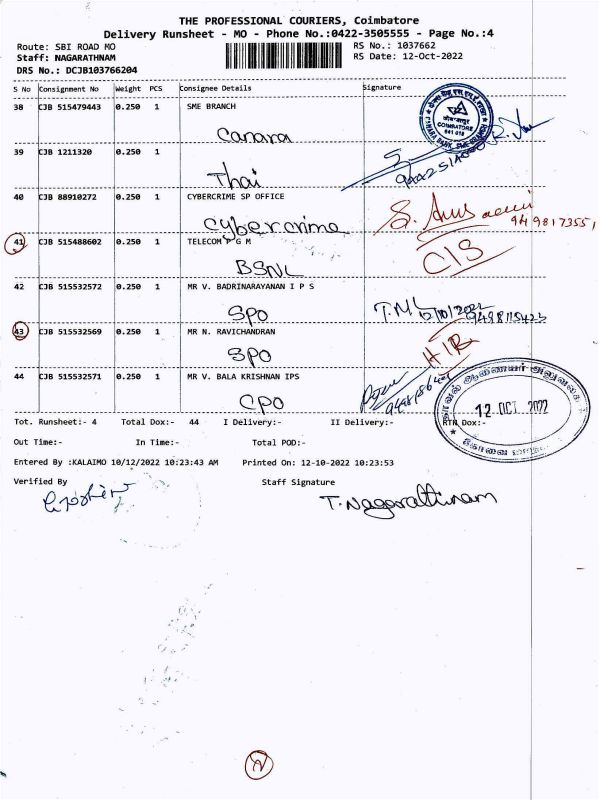 THE PROFESSIONAL COURIERS, Coimbatore
Delivery Runsheet - MO - Phone No.:0422-3505555 - Page No.:4
Route: SBI ROAD MO
RS No.: 1037662
Staff: NAGARATHNAM
RS Date: 12-Oct-2022
DRS No.: DCJB103766204
S No Consignment No Weight PCS Consignee Details Signature
38 CJB 515479443 0.250 1 SME BRANCH
Canara
COIMBATORE
641 018
39 CJB 1211320 0.250 1
Thai
40 CJB 88910272 0.250 1 CYBERCRIME SP OFFICE
Cybercrime
41 CJB 515488602 0.250 1 TELECOM P G M
BSNL
C/S
42 CJB 515532572 0.250 1 MR V. BADRINARAYANAN I P S
SPO
12/10/2022
43 CJB 515532569 0.250 1 MR N. RAVICHANDRAN
SPO
44 CJB 515532571 0.250 1 MR V. BALA KRISHNAN IPS
CPO
12 OCT 2022
Tot. Runsheet:- 4 Total Dox:- 44 I Delivery:- II Delivery:- RTN Dox:-
Out Time:- In Time:- Total POD:-
Entered By :KALAIMO 10/12/2022 10:23:43 AM Printed On: 12-10-2022 10:23:53
Verified By Staff Signature
T. Nagarathinam